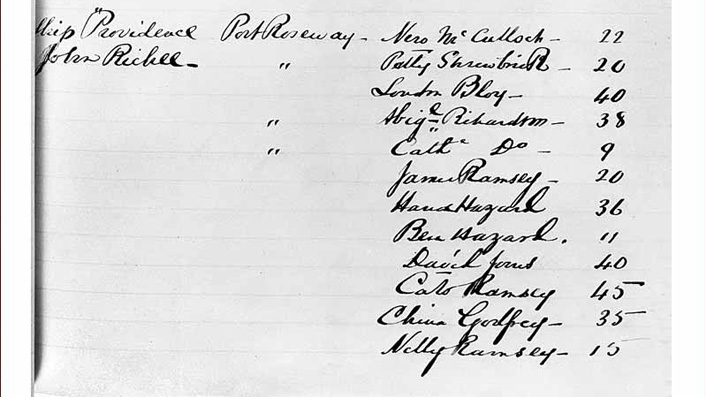 Ship "Providence Port Roseway - Nero McCulloch - 22
John Richee - " Patty 20
London Bloy - 40
" Abigl Richardson - 38
" Cathe Do 9
James Ramsey - 20
Hazard 36
Ben Hazard. 11
David Jones 40
Cato Ramsey 45
China Godfrey - 35
Nelly Ramsey - 15